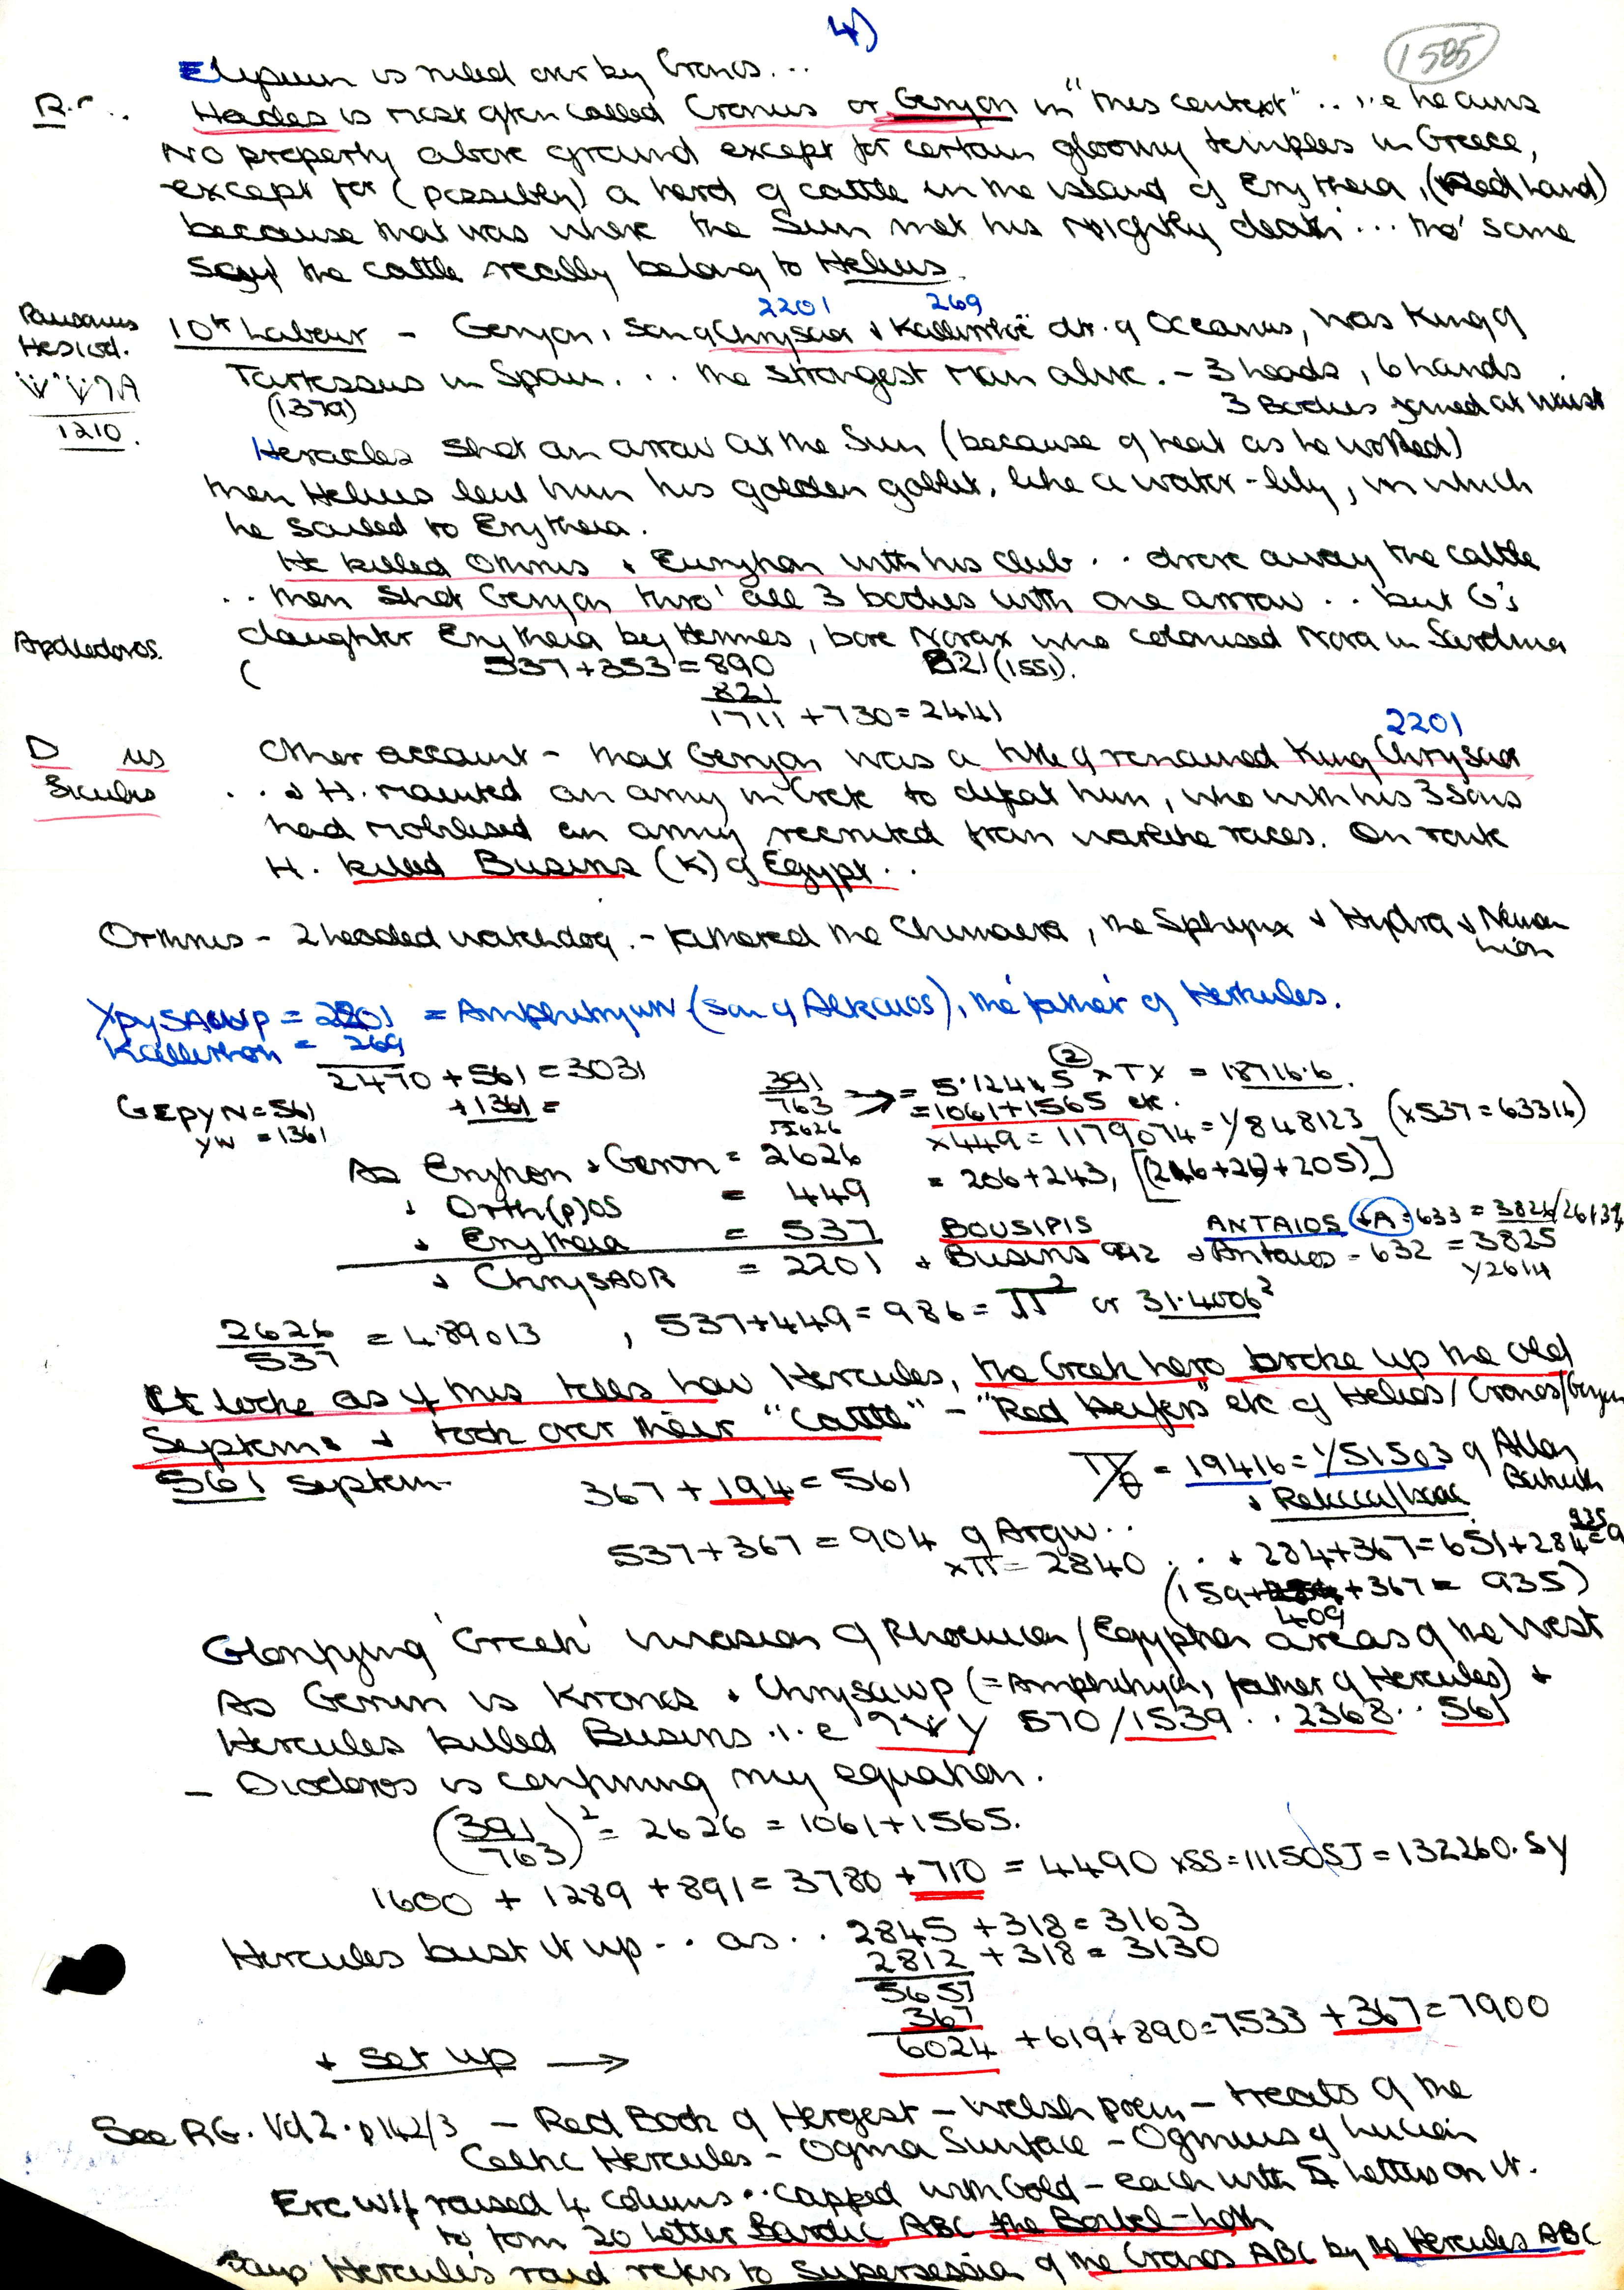 4)
1585
Elysium is ruled over by Cronos...
R.G.. Hades is most often called Cronus or Geryon in "this context".. i.e he owns
no property above ground except for certain gloomy temples in Greece,
except for (possibly) a herd of cattle in the island of Erytheia, (Red land)
because that was where the Sun met his nightly death... tho' some
say the cattle really belong to Helius.
2201 269
Pausanus
Hesiod.
1210.
10th Labour - Geryon, son of Chrysaor + Kallirrhoë dtr. of Oceanus, was King of
Tartessus in Spain... the strongest man alive. - 3 heads, 6 hands
(1379) 3 Bodies joined at waist
Heracles shot an arrow at the Sun (because of heat as he worked)
then Helius lent him his golden goblet, like a water-lily, in which
he sailed to Erytheia.
He killed Othrus + Eurython with his club.. drove away the cattle
.. then shot Geryon thro' all 3 bodies with one arrow.. but G's
Apollodoros. daughter Erytheia by Hermes, bore Norax who colonised Nora in Sardinia
( 537+353=890 821(1551).
821
1711 +730=2441
2201
D us
Siculus
Other account - that Geryon was a title of renowned King Chrysaor
.. + H. mounted an army in Crete to defeat him, who with his 3 sons
had mobilised an army recruited from warlike races. On route
H. killed Busiris (K) of Egypt..
Orthrus - 2 headed watchdog. - fathered the Chimaera, the Sphynx + Hydra + Nemean
Lion
XpySAWp = 2201 = AmphitryWN (son of Alkaios), the 'father' of Herkules.
Kallirrhon = 269
2470 +561=3031
+1361=
GEpyN=561
yW =1361
391
763
√2626
= 5.12445² x TX = 18716.6
=1061+1565 etc.
x449=1179074=1/848123 (x537=63316)
As Erython + Geron = 2626
= 206+243, [(246+26+205)]
+ Orth(p)os = 449
+ Erytheia = 537
+ ChrysAOR = 2201
BOUSIPIS
+ Busiris 992
ANTAIOS +A=633 = 3824/26134
+ Antaios = 632 = 3825
y2614
2626
537
= 4.89013 , 537+449=986=π² or 31.4006²
It looks as if this tells how Hercules, the Greek hero broke up the old
Systems + took over their "Cattle" - "Red Heifers" etc of Helios/Cronos/Geryon
561 system. 367 + 194 = 561
= 19416=1/51503 of Allon
Bakuth
+ Rebecca/Isaac
537+367=904 of Argw..
xπ=2840 .. + 284+367=651+284=935
(159+409+367= 935)
Glorifying 'Greek' invasion of Phoenician/Egyptian areas of the West
As Geryon is Kronos + Chrysawp (=Amphitryon, father of Hercules) +
Hercules killed Busiris i.e 570/1539.. 2368.. 561
- Diodoros is confirming my equation.
(391/763)² = 2626 = 1061+1565.
1600 + 1289 +891=3780 +710 = 4490 xSS=11150SJ=132260.SY
Hercules bust it up.. as.. 2845 +318=3163
2812 +318= 3130
5657
367
6024 +619+890=7533 +367=7900
+ set up →
See RG. Vol 2. p142/3 - Red Book of Hergest - Welsh poem - treats of the
Celtic Hercules - Ogma Sunface - Ogmius of Lucian
Erc wlf raised 4 columns.. capped with Gold - each with 5 letters on it.
to form 20 letter Bardic ABC the Boibel-Loth
Says Hercules raid refers to supersession of the Cronos ABC by the Hercules ABC